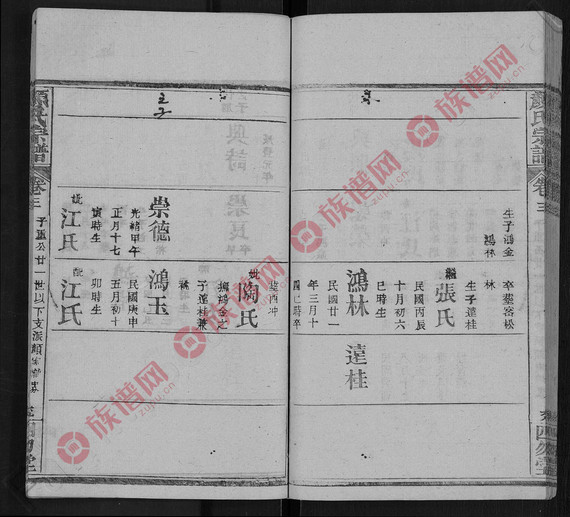 顏氏宗譜
卷三
四勿堂
生子鴻金
鴻林
卒塟窑松
林
繼張氏
生子達桂
民國丙辰
十月初六
巳時生
鴻林
達桂
民國廿一
年三月十
四巳時卒
妣陶氏
癸酉冲
撫鴻金之
子達桂兼
祧
崇德
鴻玉
光緒甲午
正月十七
寅時生
民國庚申
五月初十
卯時生
妣江氏
妣江氏
顏氏宗譜
卷三
子重公廿一世以下支派
族谱网
zupu.cn
族谱网
zupu.cn
族谱网
zupu.cn
族谱网
zupu.cn
族谱网
zupu.cn